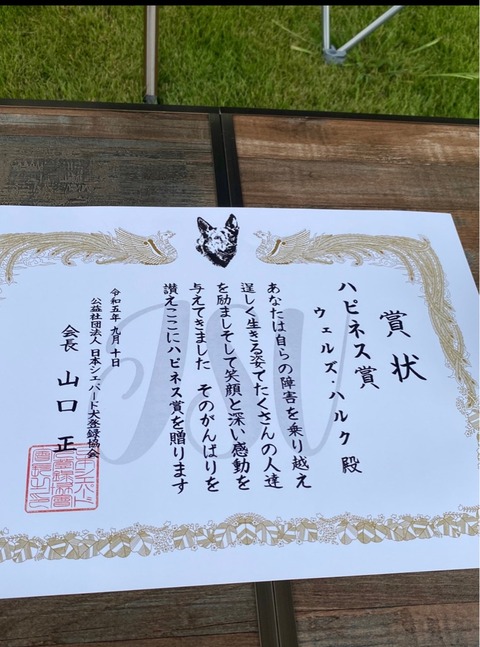 賞状
ハピネス賞
ウェルズ・ハルク 殿
あなたは自らの障害を乗り越え
逞しく生きる姿でたくさんの人達
を励ましそして笑顔と深い感動を
与えてきました そのがんばりを
讃えここにハピネス賞を贈ります
令和五年 九月 十日
公益社団法人 日本シェパード犬登録協会
会長 山口 正
JSV